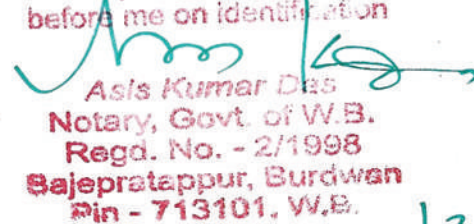 before me on identification
Asis Kumar Das
Notary, Govt. of W.B.
Regd. No. - 2/1998
Bajepratappur, Burdwan
Pin - 713101, W.B.